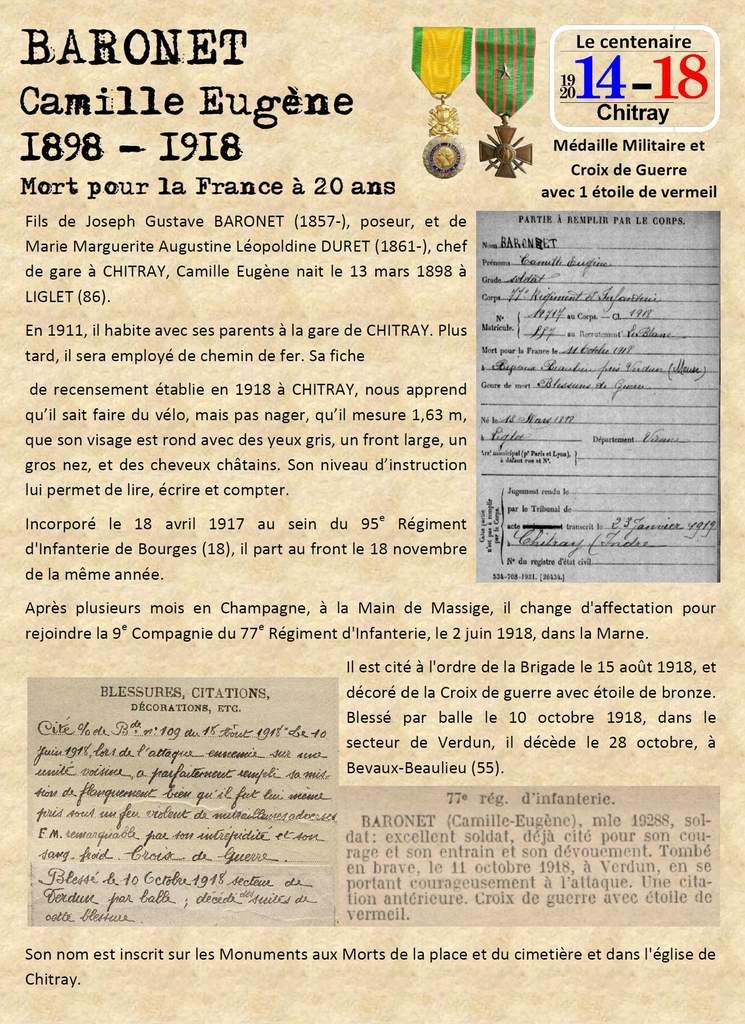 BARONET
Camille Eugène
1898 – 1918
Mort pour la France à 20 ans
Le centenaire
19
20
14-18
Chitray
Médaille Militaire et
Croix de Guerre
avec 1 étoile de vermeil
Fils de Joseph Gustave BARONET (1857-), poseur, et de
Marie Marguerite Augustine Léopoldine DURET (1861-), chef
de gare à CHITRAY, Camille Eugène nait le 13 mars 1898 à
LIGLET (86).
En 1911, il habite avec ses parents à la gare de CHITRAY. Plus
tard, il sera employé de chemin de fer. Sa fiche
de recensement établie en 1918 à CHITRAY, nous apprend
qu’il sait faire du vélo, mais pas nager, qu’il mesure 1,63 m,
que son visage est rond avec des yeux gris, un front large, un
gros nez, et des cheveux châtains. Son niveau d’instruction
lui permet de lire, écrire et compter.
Incorporé le 18 avril 1917 au sein du 95e Régiment
d'Infanterie de Bourges (18), il part au front le 18 novembre
de la même année.
PARTIE À REMPLIR PAR LE CORPS.
Nom BARONET
Prénoms Camille Eugène
Grade soldat
Corps 77e Régiment d'Infanterie
N° au Corps. — Cl. 1918
Matricule. 887 au Recrutement Le Blanc
Mort pour la France le 11 Octobre 1918
près Verdun (Meuse)
Genre de mort Blessures de Guerre
Né le 13 Mars
à Liglet Département Vienne
Arrt municipal (pr Paris et Lyon),
à défaut rue et N°.
Jugement rendu le
par le Tribunal de
acte transcrit le 23 Janvier 1919
à Chitray (Indre
N° du registre d'état civil
534-708-1921. [26434.]
Après plusieurs mois en Champagne, à la Main de Massige, il change d'affectation pour
rejoindre la 9e Compagnie du 77e Régiment d'Infanterie, le 2 juin 1918, dans la Marne.
Il est cité à l'ordre de la Brigade le 15 août 1918, et
décoré de la Croix de guerre avec étoile de bronze.
Blessé par balle le 10 octobre 1918, dans le
secteur de Verdun, il décède le 28 octobre, à
Bevaux-Beaulieu (55).
BLESSURES, CITATIONS,
DÉCORATIONS, ETC.
Cité % de Bde n° 109 du 18 Août 1918 "Le 10
Juin 1918, lors de l'attaque ennemie sur une
unité voisine, a parfaitement rempli sa mis-
sion de flanquement bien qu'il fut lui même
pris sous un feu violent de mitrailleuses adverses
F.M. remarquable par son intrépidité et son
sang-froid. Croix de Guerre.
Blessé le 10 Octobre 1918 secteur de
Verdun par balle ; décédé des suites de
cette blessure.
77e rég. d'infanterie.
BARONET (Camille-Eugène), mle 19288, sol-
dat: excellent soldat, déjà cité pour son cou-
rage et son entrain et son dévouement. Tombé
en brave, le 11 octobre 1918, à Verdun, en se
portant courageusement à l'attaque. Une cita-
tion antérieure. Croix de guerre avec étoile de
vermeil.
Son nom est inscrit sur les Monuments aux Morts de la place et du cimetière et dans l'église de
Chitray.